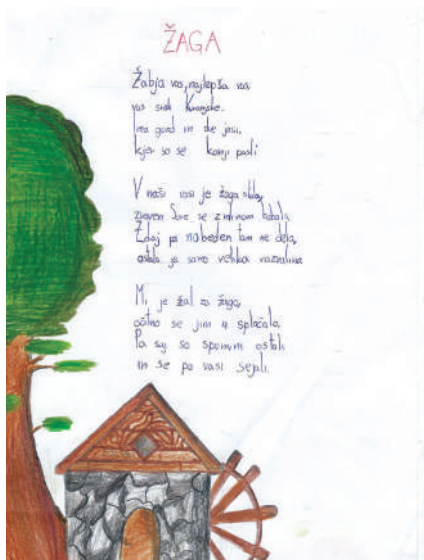 ŽAGA
Žabja vas, najlepša vas
vas sredi Kranjske.
Ima gozd in dve jasi,
kjer so se konji pasli.
V naši vasi je žaga stala,
zraven Sore se z mlinom bahala.
Zdaj pa nobeden tam ne dela,
ostala je samo velika razvalina.
Mi je žal za žago,
očitno se jim ni splačalo.
Pa saj so spomini ostali
in se po vasi sejali.